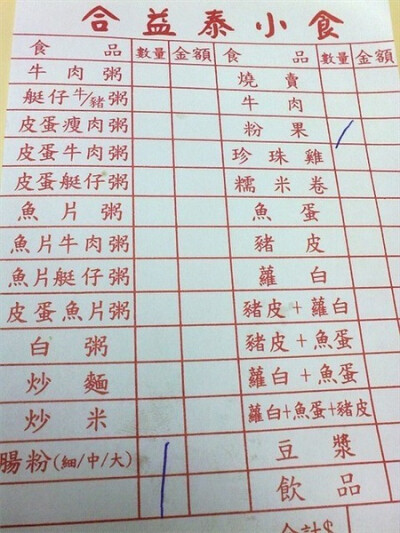 合益泰小食
食品 數量 金額 食品 數量 金額
牛肉粥 燒賣
艇仔牛/豬粥 牛肉
皮蛋瘦肉粥 粉果 /
皮蛋牛肉粥 珍珠雞
皮蛋艇仔粥 糯米卷
魚片粥 魚蛋
魚片牛肉粥 豬皮
魚片艇仔粥 蘿白
皮蛋魚片粥 豬皮+蘿白
白粥 豬皮+魚蛋
炒麵 蘿白+魚蛋
炒米 蘿白+魚蛋+豬皮
腸粉(細/中/大) | 豆漿
飲品
合計$